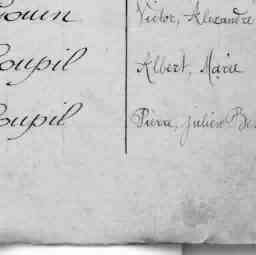 Victor, Alexandre
oupil Albert, Marie
oupil Pierre, Julien